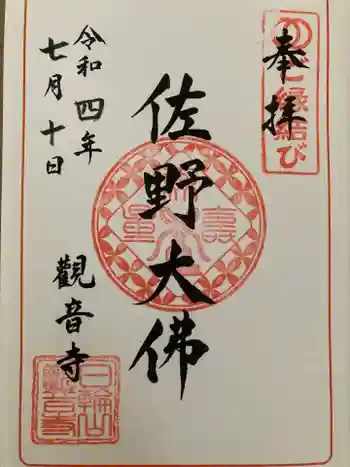 奉拝
ご縁結び
佐野大佛
令和四年
七月十日
觀音寺
日輪山